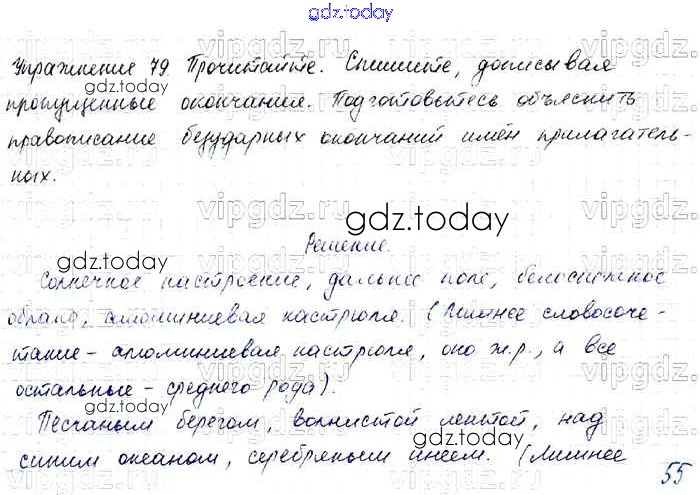 gdz.today
Упражнение 79. Прочитайте. Спишите, дописывая
пропущенные окончания. Подготовьтесь объяснить
правописание безударных окончаний имён прилагатель-
ных.
Решение.
Солнечное настроение, дальнее поле, белоснежное
облако, алюминиевая кастрюля. (Лишнее словосоче-
тание - алюминиевая кастрюля, оно ж.р., а все
остальные - среднего рода).
Песчаным берегом, волнистой лентой, над
синим океаном, серебряным инеем. (Лишнее
55